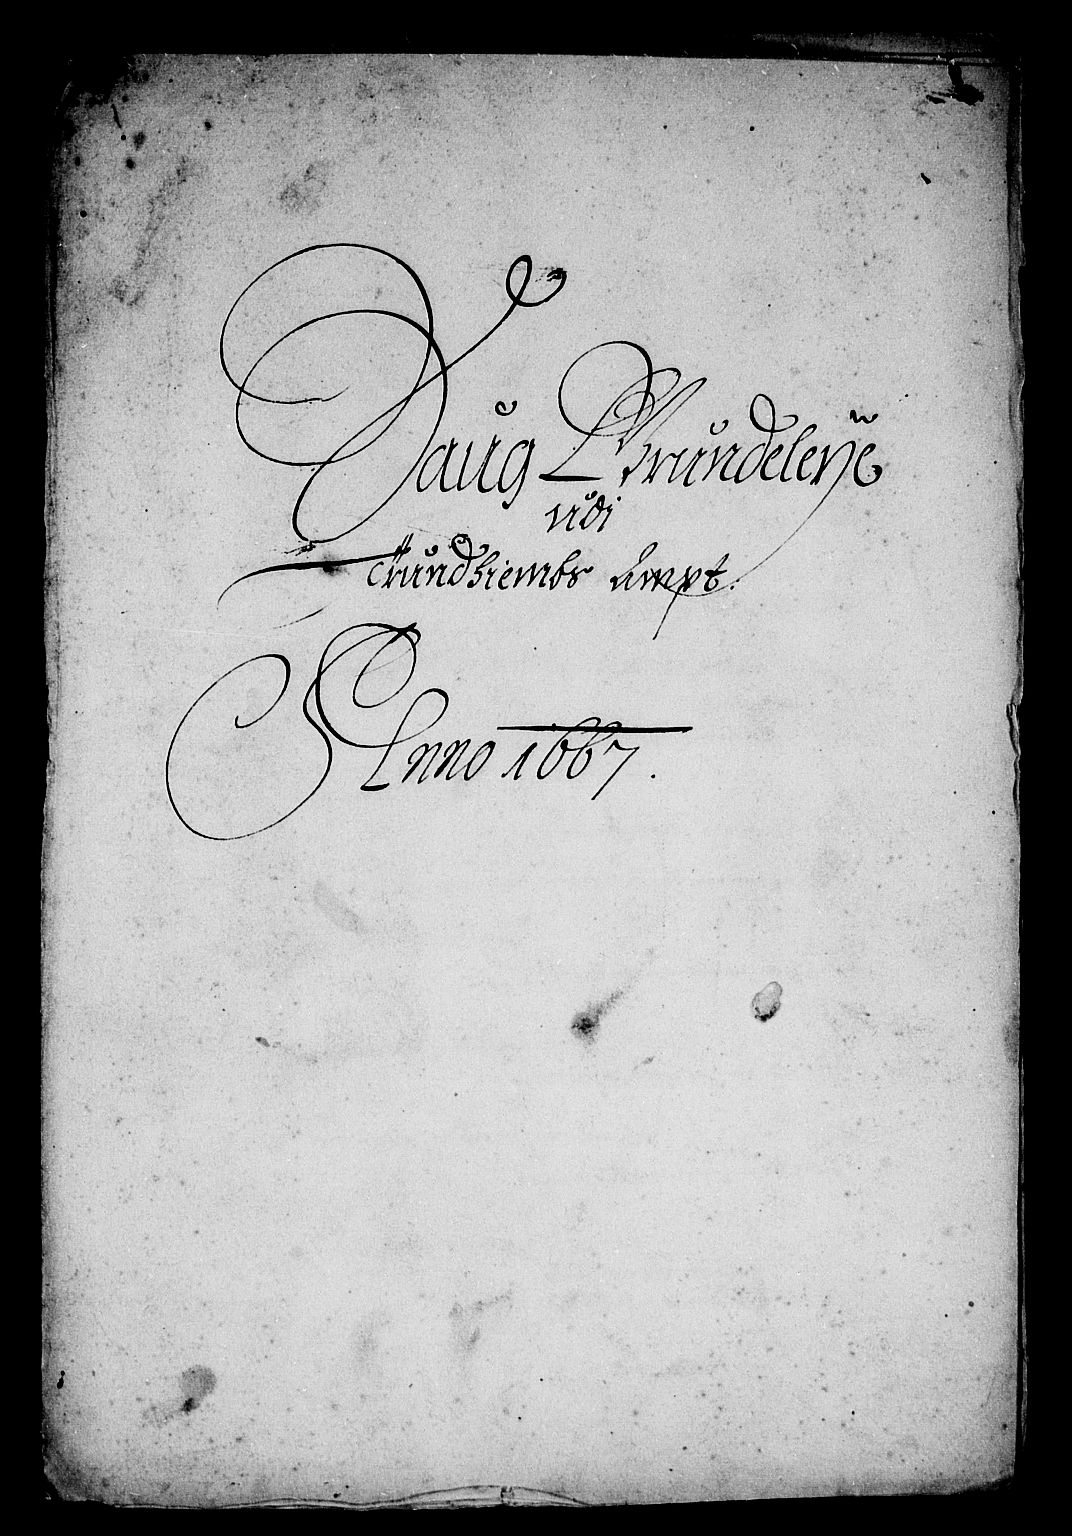 Saug Grundeleÿe
udi
Trundhiembs Ampt.
Anno 1667.